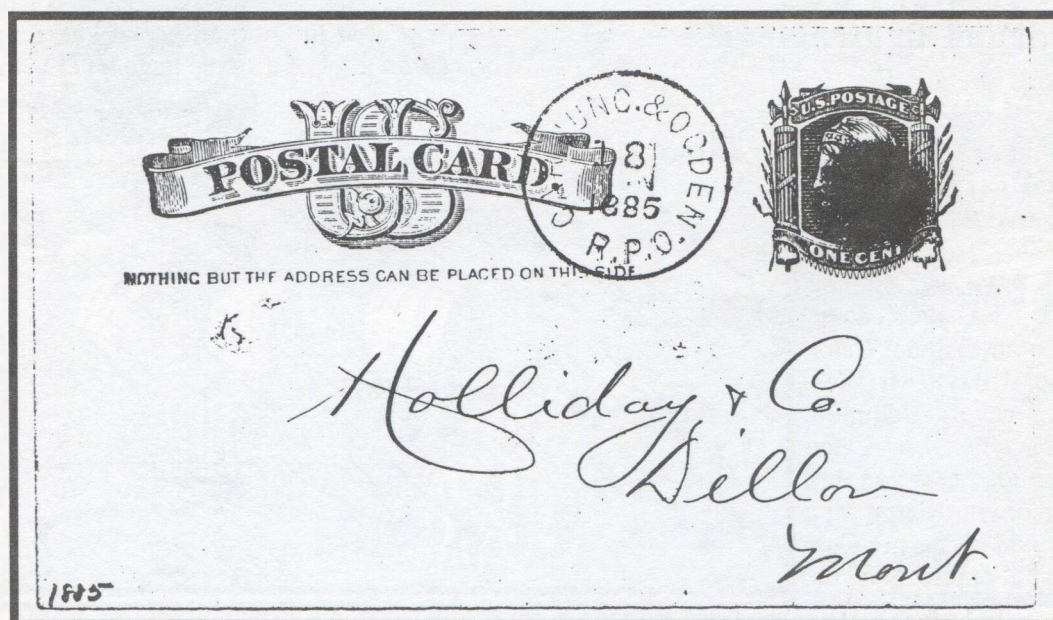 US
POSTAL CARD
NOTHING BUT THE ADDRESS CAN BE PLACED ON THIS SIDE
JUNC. & OGDEN
8
1885
R.P.O.
U.S. POSTAGE
ONE CENT
Holliday & Co.
Dillon
Mont.
1885